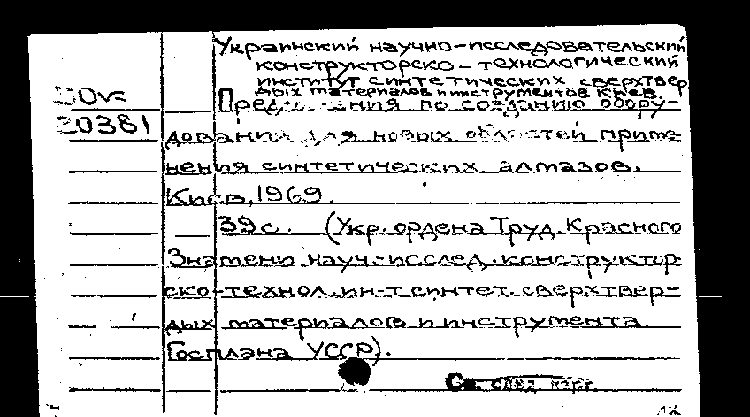 Украинский научно-исследовательский
конструкторско-технологический
институт синтетических сверхтвер
дых материалов и инструментов Киев.
Предложения по созданию обору-
20381
дования для новых областей приме-
нения синтетических алмазов.
Киев, 1969.
39 с. (Укр. ордена Труд. Красного
Знамени науч.-исслед. конструктор-
ско-технол. ин-т синтет. сверхтвер-
дых материалов и инструмента
Госплана УССР).
См. след. карт.